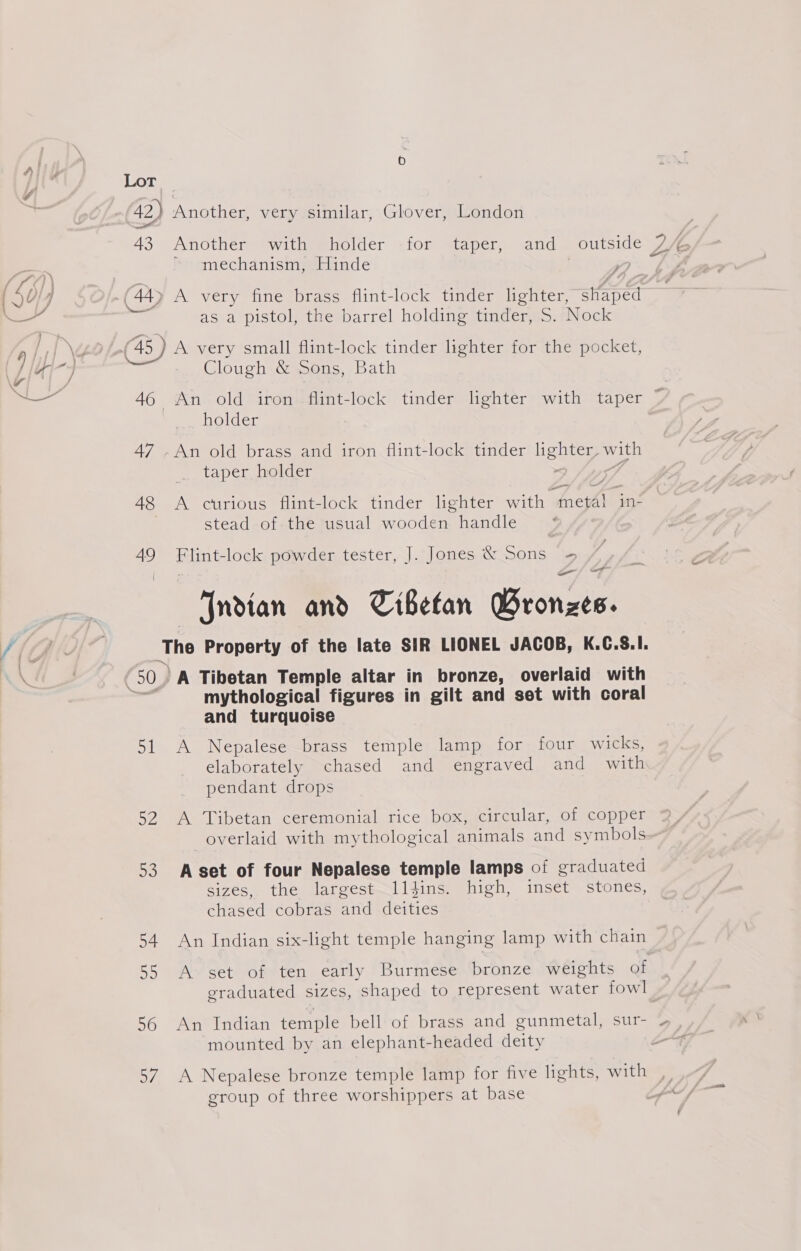 6
LOT
42) Another, very similar, Glover, London
43 Another with holder for taper, and outside
mechanism, Hinde
(44) A very fine brass flint-lock tinder lighter, shaped
as a pistol, the barrel holding tinder, S. Nock
(45) A very small flint-lock tinder lighter for the pocket,
Clough & Sons, Bath
46 An old iron flint-lock tinder lighter with taper
holder
47 An old brass and iron flint-lock tinder lighter, with
taper holder
48 A curious flint-lock tinder lighter with metal in-
stead of the usual wooden handle
49 Flint-lock powder tester, J. Jones & Sons
Indian and Tibetan Bronzes.
The Property of the late SIR LIONEL JACOB, K.C.S.I.
50 A Tibetan Temple altar in bronze, overlaid with
mythological figures in gilt and set with coral
and turquoise
51 A Nepalese brass temple lamp for four wicks,
elaborately chased and engraved and with
pendant drops
52 A Tibetan ceremonial rice box, circular, of copper
overlaid with mythological animals and symbols
53 A set of four Nepalese temple lamps of graduated
sizes, the largest 11½ins. high, inset stones,
chased cobras and deities
54 An Indian six-light temple hanging lamp with chain
55 A set of ten early Burmese bronze weights of
graduated sizes, shaped to represent water fowl
56 An Indian temple bell of brass and gunmetal, sur-
mounted by an elephant-headed deity
57 A Nepalese bronze temple lamp for five lights, with
group of three worshippers at base